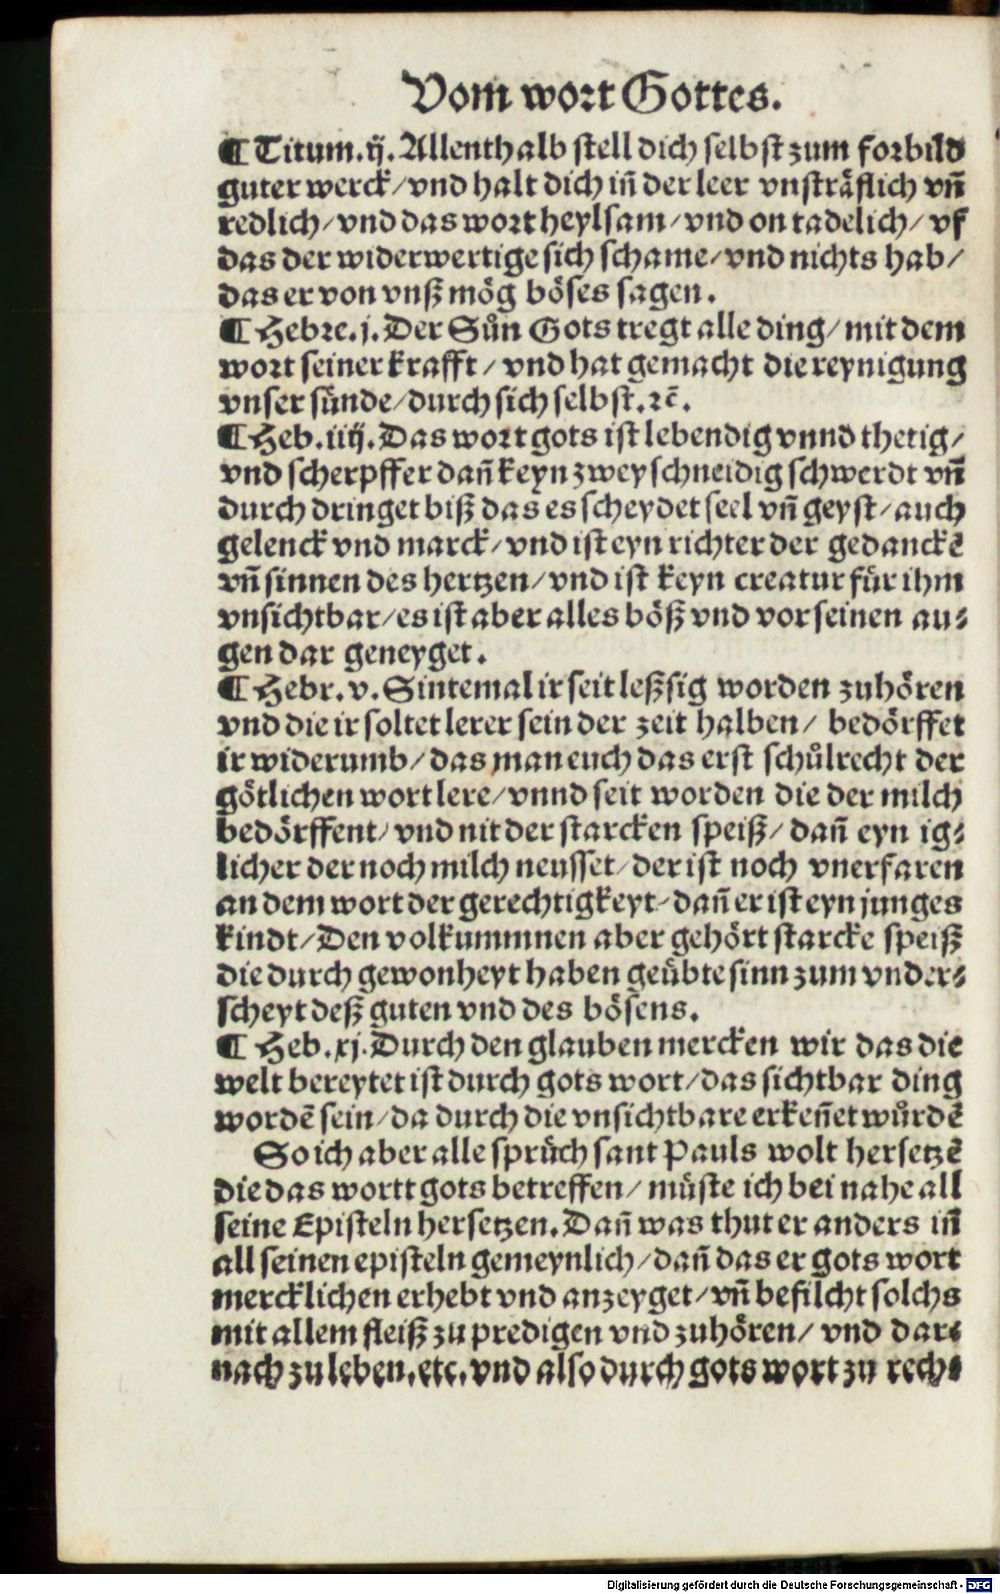 Vom wort Gottes.
¶ Titum.ij. Allenthalb stell dich selbst zum forbild
guter werck/vnd halt dich in̄ der leer vnsträflich vn̄
redlich/vnd das wort heylsam/vnd on tadelich/vf
das der widerwertige sich schame/vnd nichts hab/
das er von vnß mög böses sagen.
¶ Hebre.j. Der Sůn Gots tregt alle ding/mit dem
wort seiner krafft/vnd hat gemacht die reynigung
vnser sünde/durch sich selbst.ꝛc̄.
¶ Heb.iiij. Das wort gots ist lebendig vnnd thetig/
vnd scherpffer dan̄ keyn zweyschneidig schwerdt vn̄
durch dringet biß das es scheydet seel vn̄ geyst/auch
gelenck vnd marck/vnd ist eyn richter der gedanckē
vn̄ sinnen des hertzen/vnd ist keyn creatur für ihm
vnsichtbar/es ist aber alles böß vnd vor seinen au⸗
gen dar geneyget.
¶ Hebr.v. Sintemal ir seit leßsig worden zuhören
vnd die ir soltet lerer sein der zeit halben/ bedörffet
ir widerumb/das man euch das erst schůlrecht der
götlichen wort lere/vnnd seit worden die der milch
bedörffent/vnd nit der starcken speiß/dan̄ eyn ig⸗
licher der noch milch neusset/der ist noch vnerfaren
an dem wort der gerechtigkeyt/dan̄ er ist eyn junges
kindt/Den volkummnen aber gehört starcke speiß
die durch gewonheyt haben geübte sinn zum vnder⸗
scheyt deß guten vnd des bösens.
¶ Heb.xj. Durch den glauben mercken wir das die
welt bereytet ist durch gots wort/das sichtbar ding
wordē sein/da durch die vnsichtbare erken̄et wůrdē
So ich aber alle sprüch sant Pauls wolt hersetzē
die das wortt gots betreffen/ müste ich bei nahe all
seine Episteln hersetzen. Dan̄ was thut er anders in̄
all seinen episteln gemeynlich/dan̄ das er gots wort
mercklichen erhebt vnd anzeyget/vn̄ befilcht solchs
mit allem fleiß zu predigen vnd zuhören/ vnd dar⸗
nach zu leben.etc. vnd also durch gots wort zu rech⸗
Digitalisierung gefördert durch die Deutsche Forschungsgemeinschaft - DFG